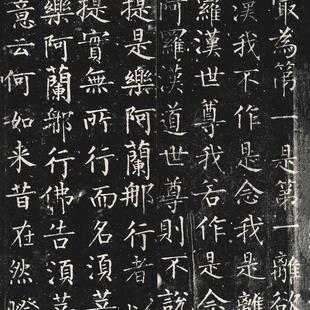 冣為第一是第一離欲
漢我不作是念我是離
羅漢世尊我若作是念
阿羅漢道世尊則不說
提是樂阿蘭那行者以
提實無所行而名須菩
樂阿蘭那行佛告須菩
意云何如来昔在然